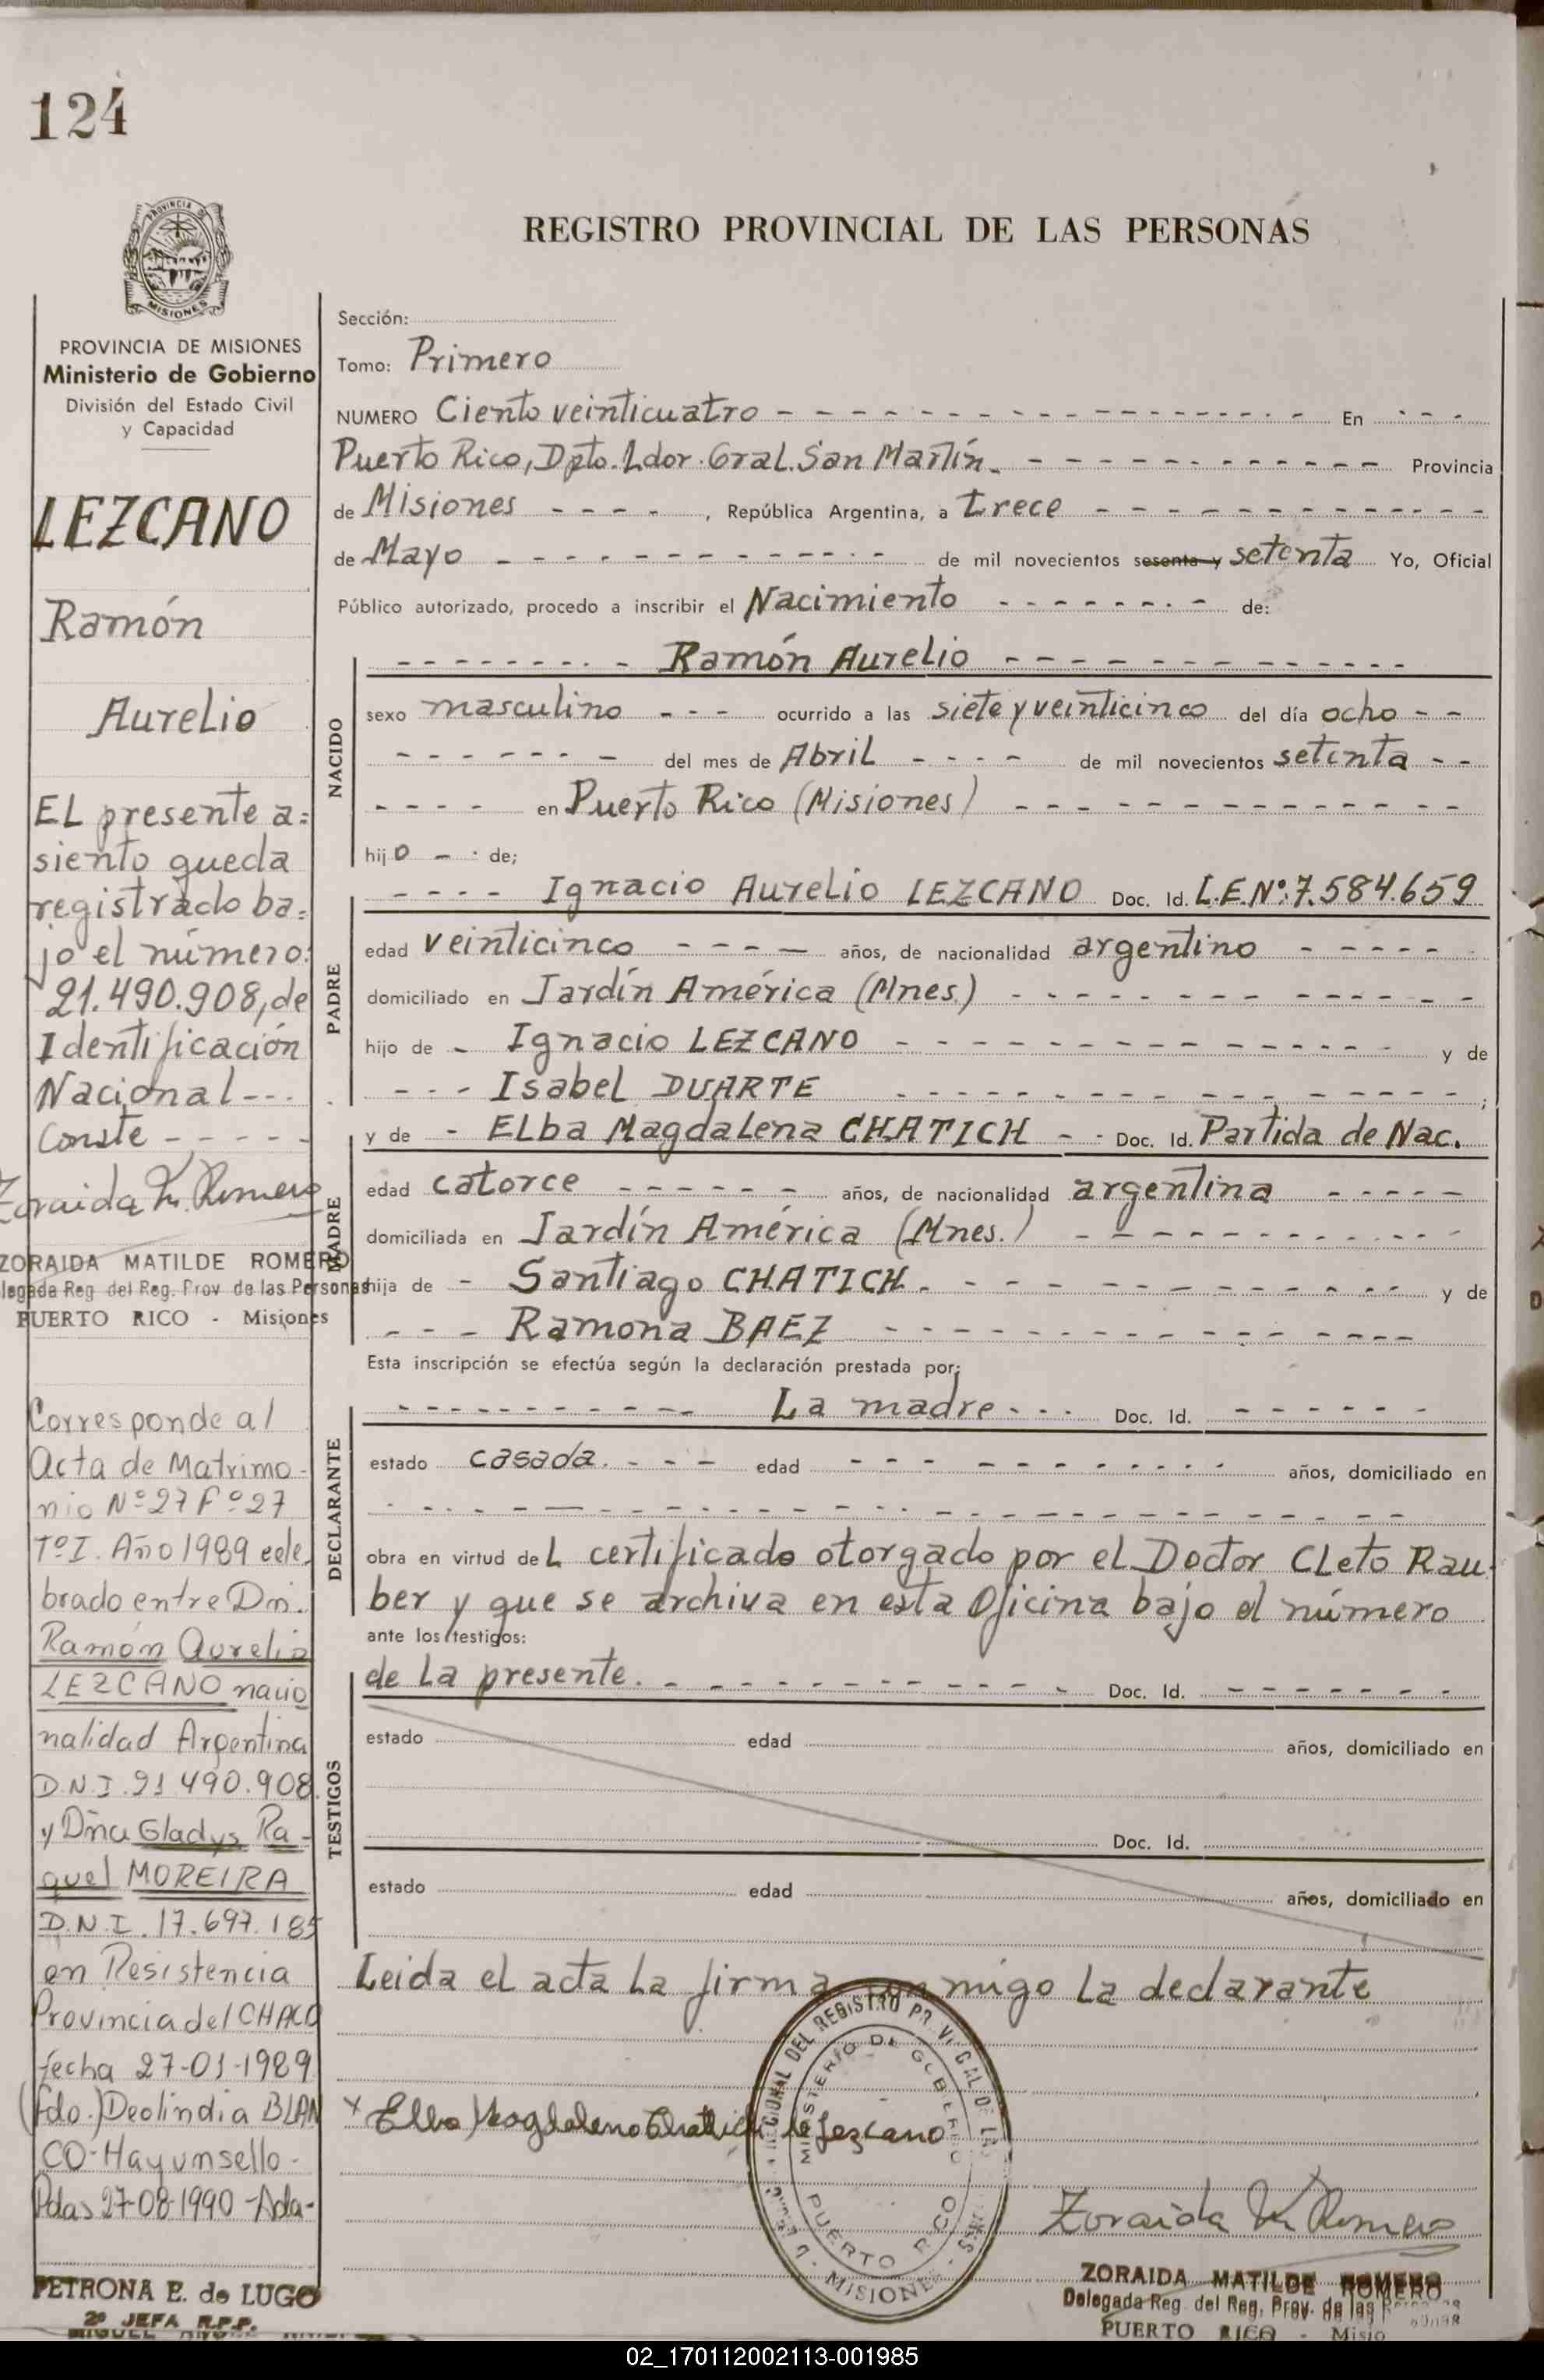 124
REGISTRO PROVINCIAL DE LAS PERSONAS
PROVINCIA DE
MISIONES
PROVINCIA DE MISIONES
Ministerio de Gobierno
División del Estado Civil
y Capacidad
LEZCANO
Ramón
Aurelio
EL presente a=
siento queda
registrado ba=
jo el número:
21.490.908, de
Identificación
Nacional - - -
Conste - - - - -
Zoraida M. Romero
ZORAIDA MATILDE ROMERO
legada Reg. del Reg. Prov de las Personas
PUERTO RICO - Misiones
Corresponde al
Acta de Matrimo-
nio Nº 27 Fº 27
Tº I. Año 1989 cele
brado entre Dn.
Ramón Aurelio
LEZCANO nacio
nalidad Argentina
D.N.I. 21.490.908
y Dña Gladys Ra-
quel MOREIRA
D.N.I. 17.697.185
en Resistencia
Provincia del CHACO
fecha 27-01-1989
(fdo.) Deolindia BLAN
CO-
Pdas 27-08-1990 -
PETRONA E. de LUGO
2ª JEFA R.P.P.
Sección:
Tomo: Primero
NUMERO Ciento veinticuatro - - - En - - -
Puerto Rico, Dpto. Ldor. Gral. San Martín. - - - Provincia
de Misiones - - - - , República Argentina, a trece - - -
de Mayo - - - de mil novecientos sesenta y setenta Yo, Oficial
Público autorizado, procedo a inscribir el Nacimiento - - - de:
NACIDO
- - - Ramón Aurelio - - -
sexo masculino - - - ocurrido a las siete y veinticinco del día ocho - -
- - - del mes de Abril - - - - de mil novecientos setenta - -
- - - - en Puerto Rico (Misiones) - - -
hijo - - de;
PADRE
- - - - Ignacio Aurelio LEZCANO Doc. Id. L.E.Nº: 7.584.659
edad veinticinco - - - - años, de nacionalidad argentino - - - - -
domiciliado en Jardín América (Mnes.) - - -
hijo de - Ignacio LEZCANO - - - y de
- - - Isabel DUARTE - - - ;
MADRE
y de - ELba MagdaLena CHATICH - - Doc. Id. Partida de Nac.
edad catorce - - - - - - años, de nacionalidad argentina - - - - -
domiciliada en Jardín América (Mnes.) - - -
hija de - Santiago CHATICH. - - - y de
- - - Ramona BAEZ - - -
Esta inscripción se efectúa según la declaración prestada por:
DECLARANTE
- - - La madre - - - Doc. Id. - - - - - -
estado casada. - - - - edad - - - años, domiciliado en
- - -
obra en virtud deL certificado otorgado por el Doctor CLeto Rau-
ber y que se archiva en esta Oficina bajo el número
ante los testigos:
TESTIGOS
de La presente. - - - Doc. Id. - - - - - - -
estado edad años, domiciliado en
Doc. Id.
estado edad años, domiciliado en
Leida el acta La firma conmigo La declarante
x Elba Magdalena Chatich de Lezcano
REGIONAL DEL REGISTRO PROVINCIAL DE LAS
MINISTERIO DE GOBIERNO
PUERTO RICO
- MISIONES -
Zoraida M. Romero
ZORAIDA MATILDE ROMERO
Delegada Reg. del Reg. Prov. de las Personas
PUERTO RICO - Misio
02_170112002113-001985